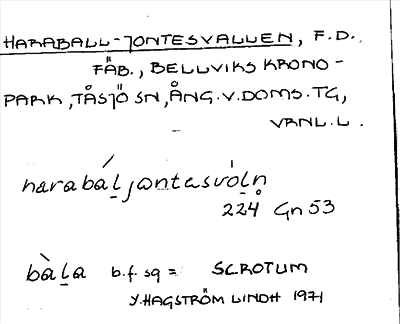 HARABALL-JONTESVALLEN, F.D.,
FÄB., BELLVIKS KRONO-
PARK, TÅSJÖ SN, ÅNG. V. DOMS. TG,
VRNL. L.
harabáḷjo̯ntasvóḷn̥
224 Gn 53
bàḷa b.f. sg = SCROTUM
Y. HAGSTRÖM LINDH 1971